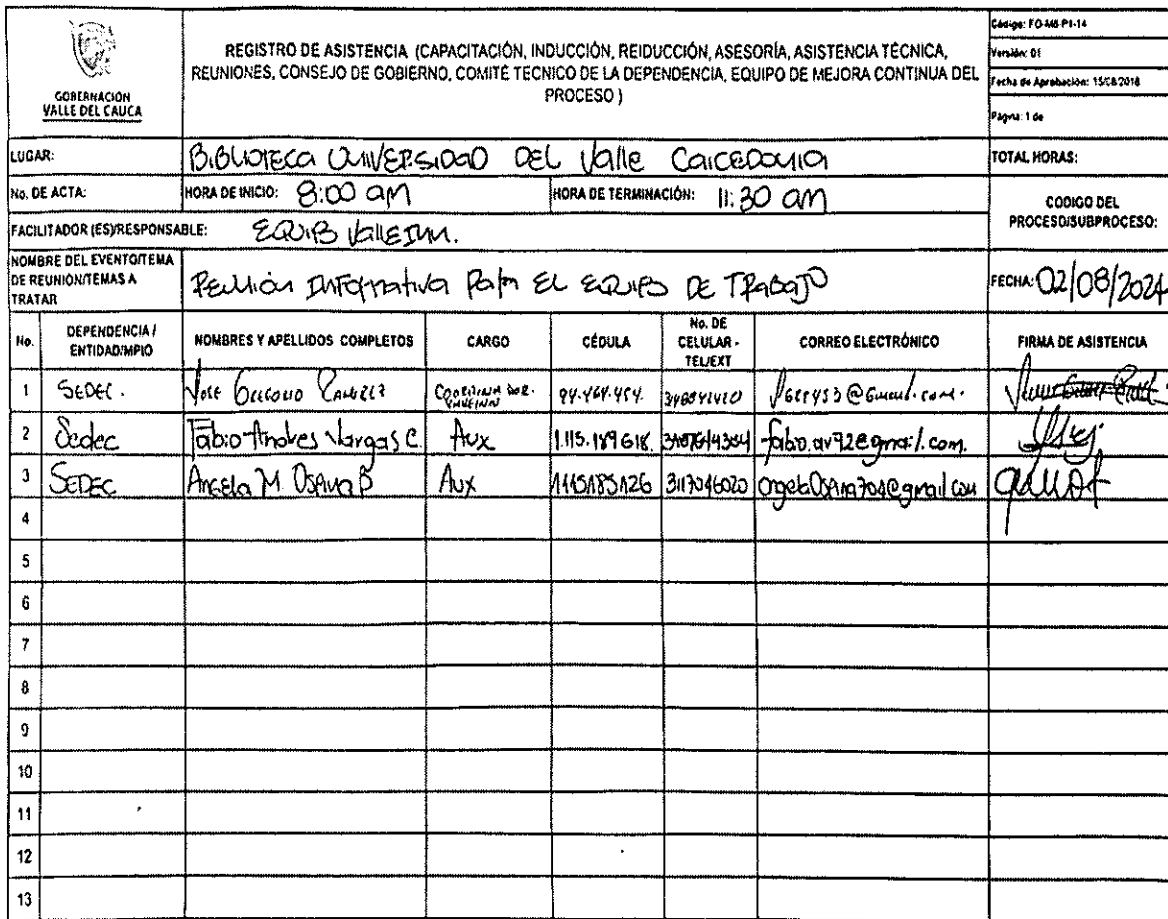 GOBERNACIÓN
VALLE DEL CAUCA
REGISTRO DE ASISTENCIA (CAPACITACIÓN, INDUCCIÓN, REIDUCCIÓN, ASESORÍA, ASISTENCIA TÉCNICA,
REUNIONES, CONSEJO DE GOBIERNO, COMITÉ TECNICO DE LA DEPENDENCIA, EQUIPO DE MEJORA CONTINUA DEL
PROCESO )
Código: FO-M6-P1-14
Versión: 01
Fecha de Aprobación: 15/08/2018
Página: 1 de
LUGAR: BIBLIOTECA UNIVERSIDAD DEL Valle CAICEDONIA
TOTAL HORAS:
No. DE ACTA: HORA DE INICIO: 8:00 am HORA DE TERMINACIÓN: 11:30 am
CODIGO DEL
PROCESO/SUBPROCESO:
FACILITADOR (ES)/RESPONSABLE: EQUIPO VALLE INN.
NOMBRE DEL EVENTO/TEMA
DE REUNIÓN/TEMAS A
TRATAR
Reunión Informativa Para EL EQUIPO DE TRABAJO
FECHA: 02/08/2024
No. DEPENDENCIA / ENTIDAD/MPIO NOMBRES Y APELLIDOS COMPLETOS CARGO CÉDULA No. DE CELULAR - TEL/EXT CORREO ELECTRÓNICO FIRMA DE ASISTENCIA
1 SEDEC. COORDINADOR.
2 Sedec Fabio Andres Vargas C. Aux
3 SEDEC Angela M. Ospina B Aux 1115185126 3117046020
4
5
6
7
8
9
10
11
12
13